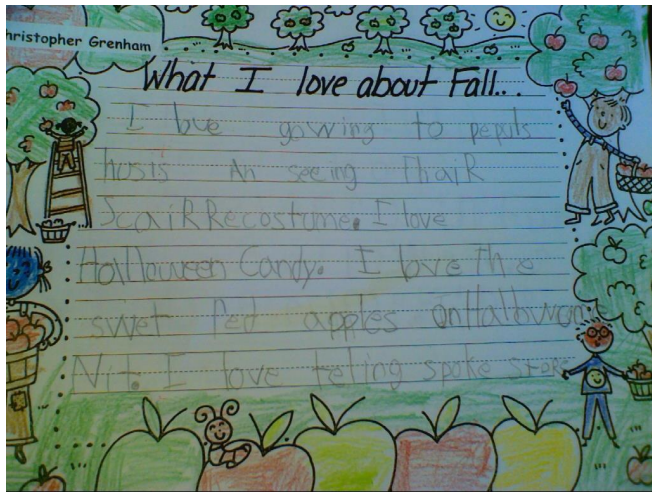 hristopher Grenham
What I love about Fall...
I love gowing to pepuls
hosis An seeing Thair
ScaiRRecostume. I love
Halloween Candy. I love The
swet Red apples onHallowon
Nit. I love teling spoke store